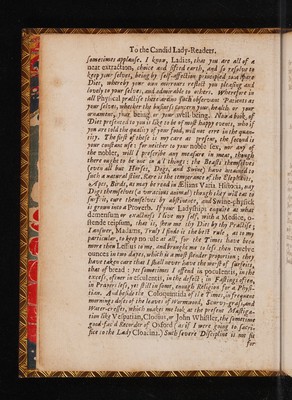 To the Candid Lady-Readers.
sometimes applause. I know, Ladies, that you are all of a
neat extraction, choice and sifted earth, and so resolve to
keep your selves, being by self-affection principled to a spare
Diet, whereby your own mirrours reflect you pleasing and
lovely to your selves, and admirable to others. Wherefore in
all Physical practise there are no such observant Patients as
your selves, whether the business concern your health, or your
ornament, your being or your well-being. Now a book of
Diet presented to you is like to be of most happy event, who if
you are told the quality of your food, will not erre in the quan-
tity. The first of these is my care at present, the second is
your constant use: for neither to your noble sex, nor any of
the nobler, will I prescribe any measure in meat, though
there ought to be one in all things; the Beasts themselves
(even all but Horses, Dogs, and Swine) have learned to
such a natural stint. Rare is the temperance of the Elephants,
Apes, Birds, as may be read in Ælians Varia Historia; nay
Dogs themselves (a voracious animal) though they will eat to
surfeit, cure themselves by abstinence, and Swine-physick
is grown into a Proverb. If your Ladyships enquire at what
demensum or exactness I live my self, with a Medice, o-
stende teipsum, that is, shew me thy Diet by thy Practise;
I answer, Madams, Truly I finde it the best rule, as to my
particular, to keep no rule at all, for the Times have been
more then Lessius to me, and brought me to less then twelve
ounces in two dayes, which is a most slender proportion; they
have taken care that I shall never have the mind of surfeit,
that of bread: yet sometimes I offend in poculentis, in the
excess, ofener in esculentis, in the defect; in Fastings often,
in Prayers less, yet still in some, enough Religion for a Physi-
tian. And beside the Coloquintida of the Times, in frequent
mornings doses of the leaves of Wormwood, Scurvy-grass, and
Water-cresses, which makes me look at the present Mastiga-
tion like Vespatian, Clodius, or John Whistler, the sometime
good-fac'd Recorder of Oxford (as if I were going to sacri-
fice to the Lady Cloacina.) Such severe Discipline is not fit
for